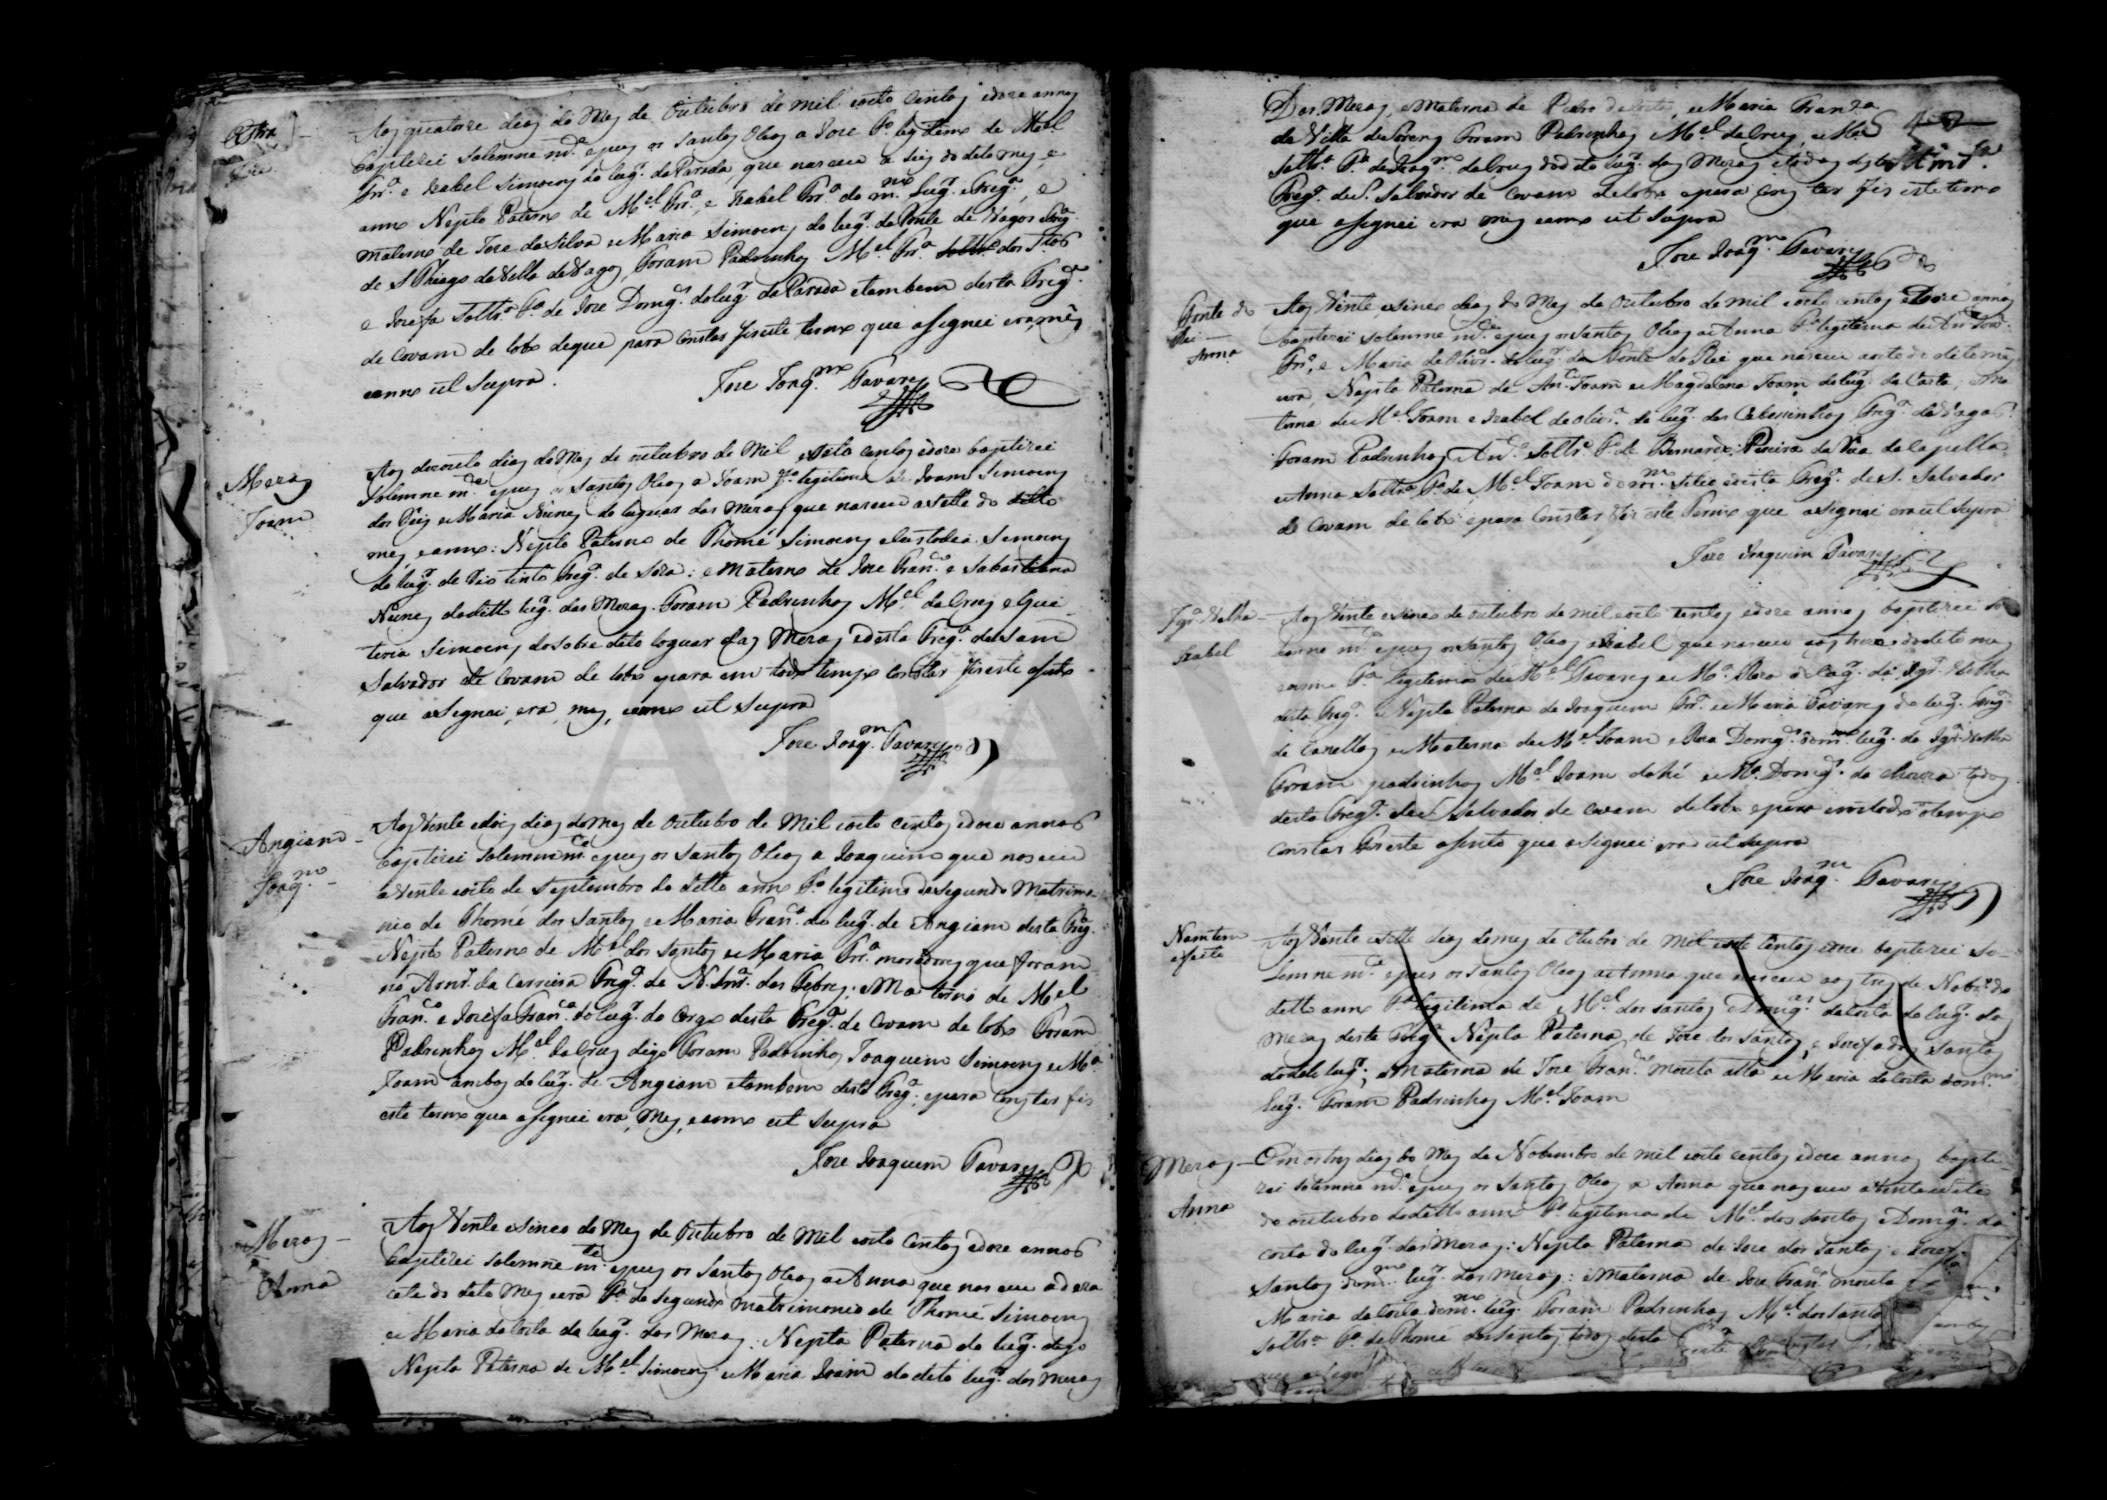 Aos quatorze dias do Mes de Outubro de mil oito Centos e doze annos
baptizei Solemne m.te e pus os Santos Oleos a Joze f.o legitimo de M.el
Fr.a e Izabel Simoens do lug.r da Parada, que nasceu a seis do dito mes, e
anno Nepto Paterno de M.el Fr.a, e Izabel Fr.a do m.mo Lug.r e Freg.a, e
materno de Joze da Silva e Maria Simoens do lug.r da Ponte de Vagos Freg.a
de S Thiago da Villa de Vagos, Foram Padrinhos M.el Fr.a dos
e Josefa Soltr.a F.a de Joze Doming.s do lug.r da Parada e tambem desta Freg.a
de Covam de lobo de que para Constar fis este termo que asignei era, mes
e anno ut Supra.
Joze Joaq.m Tavares
Meras
Joam
Aos dezoito dias do Mes de outubro de Mil e oito centos e doze baptizei
Solemne m.te e pus os Santos Oleos a Joam f.o legitimo de Joam Simoens
dos Reis e Maria Nunes do luguar das Meras que nasceu a sette do ditto
mes e anno: Nepto Paterno de Thomé Simoens e Custodia Simoens
do lug.r de Rio tinto Freg.a de Soza: e Materno de Joze Fran.co e Sabastiana
Nunes do ditto lug.r das Meras. Foram Padrinhos M.el da Crus e Gui-
teria Simoens do sobre dito loguar das Meras e desta Freg.a de Sam
Salvador de Covam de lobo e para em todo tempo constar fis este asento
que asignei, era, mes, e anno ut Supra
Joze Joaq.m Tavares
Angiam -
Joaq.m -
Aos Vinte e dois dias do mes de Outubro de Mil oito Centos e doze annos
baptizei Solemne m.te e pus os Santos Oleos a Joaquim que nasceu
a vinte e oito de Septembro do ditto anno F.o legitimo de segundo Matrimo
nio de Thomé dos Santos e Maria Fran.ca do lug.r de Angiam desta Freg.a
Nepto Paterno de M.el dos Santos e Maria Fr.a moradores que foram
na da Carreira Freg.a de N. Snr.a dos Febres; e Materno de M.el
Fran.co e Josefa Fran.ca do lug.r do Corgo desta Freg.a de Covam de lobo Foram
Padrinhos M.el da Crus digo Foram Padrinhos Joaquim Simoens e M.a
Joam ambos do lug.r de Angiam e tambem desta Freg.a e para Constar fis
este termo que asignei era, Mes, e anno ut Supra
Joze Joaquim Tavares
Meras -
Anna
Aos Vinte e sinco do Mes de Outubro de Mil oito Centos e doze annos
baptizei Solemne m.te e pus os Santos Oleos a Anna que nasceu a deza
cete do dito Mes e era F.a de segundo matrimonio de Thomé Simoens
e Maria da Costa do lug.r das Meras: Nepta Paterna do lug.r digo
Nepta Paterna de M.el Simoens e Maria Joam do dito lug.r das Meras
Das Meras, e Materna de Pedro da Costa, e Maria Franca
da Villa de Soreng Foram Padrinhos M.el da Crus, e M.a
Soltr.a F.a de Joaq.m da Crus do dito lug.r das Meras e todos desta
Freg.a de S. Salvador de Covam de lobo e para Constar fis este termo
que asignei era mes e anno ut Supra
Joze Joaq.m Tavares
Fonte do
Rei -
Anna
Aos Vinte e sinco dias do Mes de Outubro de mil oito centos e doze annos
baptizei solemne m.te e pus os Santos Oleos a Anna F.a legitima de
Fr.a e Maria de Oliv.a do lug.r da Fonte do Rei que nasceu a sete do dito mes
era, Nepta Paterna de Joam e Magdalena Joam do lug.r da Costa; e Ma
terna de M.el Joam e Izabel de Oliv.a do lug.r dos Cabesinhos Freg.a de Vagos.
Foram Padrinhos Soltr.o F.o de Bernardo Pereira da Rua da Capella
e Anna Soltr.a F.a de M.el Joam do m.mo sitio e desta Freg.a de S. Salvador
de Covam de lobo e para Constar, fis este Termo que asignei era ut supra
Joze Joaquim Tavares
Igr.a Velha -
Izabel
Aos Vinte e sinco de outubro de mil oito centos e doze annos baptizei so
lemne m.te e pus os Santos Oleos a Izabel que nasceu aos treze do dito mes
e anno F.a legitima de M.el Tavares e M.a Roza do Lug.r da Igr.a Velha
desta Freg.a e Nepta Paterna de Joaquim Fr.a e Maria Tavares do lug.r Freg.a
de e Materna de M.el Joam e Roza Doming.s do m.mo lug.r da Igr.a Velha
Foram padrinhos M.el Joam dahi e M.a Doming.s da todos
desta Freg.a de S. Salvador de Covam de lobo e para em todo o tempo
Constar fis este asento que asignei era ut supra
Joze Joaq.m Tavares
Nam tem
efeito
Aos Vinte e sette dias do mes de Outubro de Mil oito Centos e doze baptizei so-
lemne m.te e pus os Santos Oleos a Anna que nasceu aos tres de Nob.ro do
ditto anno F.a legitima de M.el dos Santos e Doming.as da Costa do lug.r das
Meras desta Freg.a Nepta Paterna de Joze dos Santos, e Josefa dos Santos
do dito lug.r; e Materna de Joze Fran.co e Maria da Costa do m.mo
lug.r Foram Padrinhos M.el Joam
Meras -
Anna
Em os tres dias do Mes de Nobembro de mil oito centos e doze annos bapti-
zei Solemne m.te e pus os Santos Oleos a Anna que nasceu a vinte e sete
de outubro do ditto anno F.a legitima de M.el dos Santos e Doming.as da
Costa do lug.r das Meras: Nepta Paterna de Joze dos Santos e
Santos do m.mo lug.r das Meras: e Materna de Joze Fran.co
Maria da Costa do m.mo lug.r Foram Padrinhos M.el dos Santos
Soltr.o F.o de Thomé dos Santos, todos desta